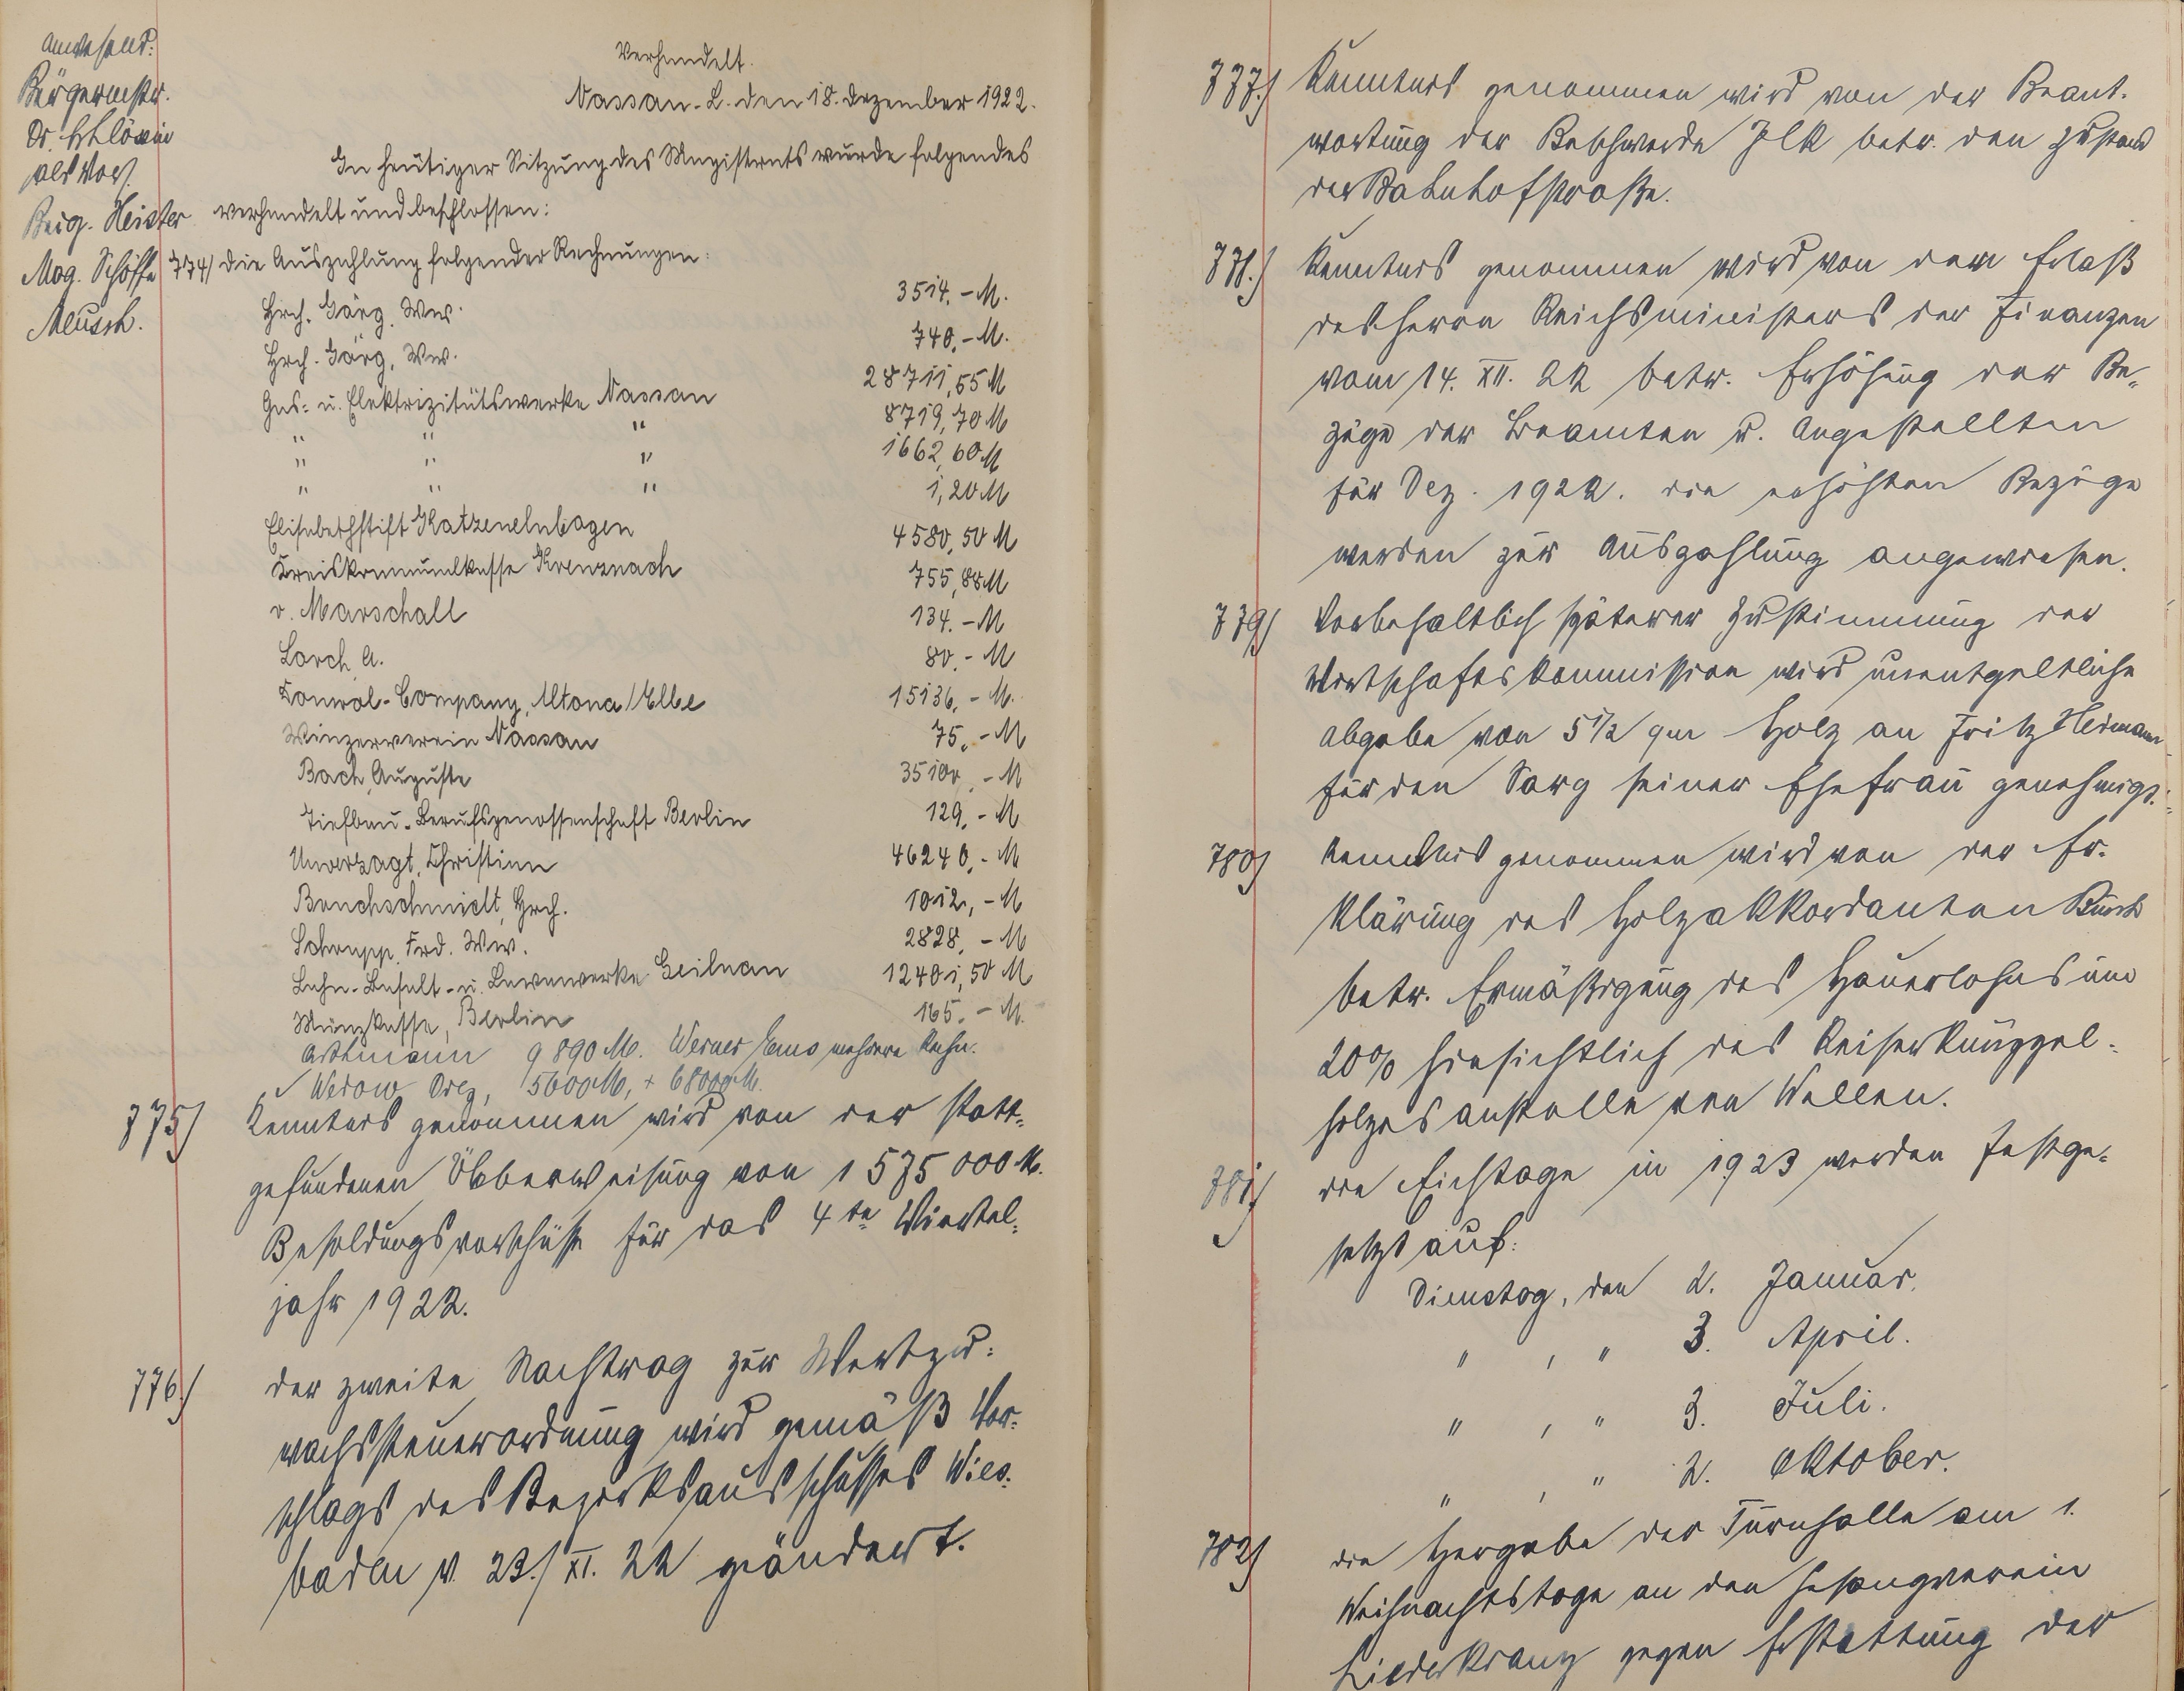 Anwesend:
Bürgermstr.
Dr. Schlösin
als Vors.
Beig. Heister
Mag. Schöffe
Meusch.
Verhandelt.
Nassau-L. den 18. Dezember 1922.
In heutiger Sitzung des Magistrats wurde folgendes
verhandelt und beschlossen:
774) die Auszahlung folgender Rechnungen:
Hrch. Görg, Ww. 3514,- M.
Hrch. Görg, Ww. 740,- M.
Gas- u. Elektrizitätswerke Nassau 28711,55 M
" " " 8719,70 M
" " " 1662,60 M
" " " 1,20 M
Elisabethstift Katzenelnbogen 4580,50 M
Kreiskommunalkasse Kreuznach 755,88 M
v. Marschall 134.- M
Lorch A. 80.- M
Konwal-Company, Altona/Elbe 15136,- M.
Winzerverein Nassau 75.- M
Bach, Auguste 35100,- M
Tiefbau-Berufsgenossenschaft Berlin 129,- M
Unverzagt, Christian 46240,- M
Buschschmidt, Hrch. 1012,- M
Schrupp, Frd. Ww. 2828,- M
Lahn-Basalt- u. Lavawerke Geilnau 12401,50 M
Münzkasse, Berlin 165.- M.
Asthmann 9890 M. Werner Ems mehrere Rechn.
✓ Werow Drez, 5600 M, + 68000 M.
775) Kenntnis genommen wird von der statt-
gefundenen Überweisung von 1 575 000 M.
Besoldungsvorschüsse für das 4te Viertel-
jahr 1922.
776) der zweite Nachtrag zur Wertzu-
wachssteuerordnung wird gemäß Vor-
schlags des Bezirksausschusses Wies-
baden v. 23./XI. 22 geändert.
777.) Kenntnis genommen wird von der Beant-
wortung der Beschwerde Ilk betr. den Zustand
der Bahnhofstraße.
778.) Kenntnis genommen wird von dem Erlaß
des Herrn Reichsministers der Finanzen
vom 14. XII. 22 betr. Erhöhung der Be-
züge der Beamten u. Angestellten
für Dez. 1922. die erhöhten Bezüge
werden zur Auszahlung angewiesen.
779) Vorbehaltlich späterer Zustimmung der
Wirtschaftskommission wird unentgeltliche
Abgabe von 5 1/2 qm Holz an Fritz Heimann
für den Sarg seiner Ehefrau genehmigt.
780) Kenntnis genommen wird von der Er-
klärung des Holzakkordanten Busch
betr. Ermäßigung des Hauerlohns um
20% hinsichtlich des Reiserknüppel-
holzes anstelle von Wellen.
781) die Eichtage in 1923 werden festge-
setzt auf:
Dienstag, den 2. Januar.
" , " 3. April.
" , " 3. Juli.
" , " 2. Oktober.
782) die Hergabe der Turnhalle am 1.
Weihnachtstage an den Gesangverein
Liederkranz gegen Erstattung der